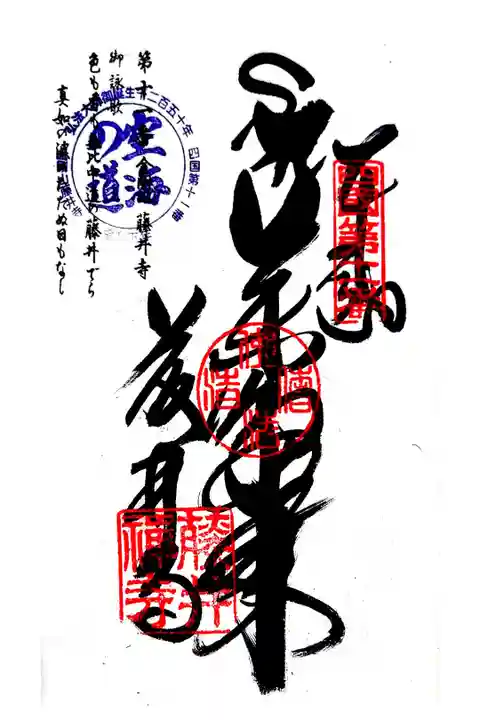 奉納
四国第十一番
薬師如来
藤井寺
藤井禅寺
弘法大師御誕生千二百五十年
四国第十一番
空海
の道
藤井寺
第十一番
藤井寺
御詠歌
色も香も無比中道の藤井でら
真如の波のたたぬ日もなし